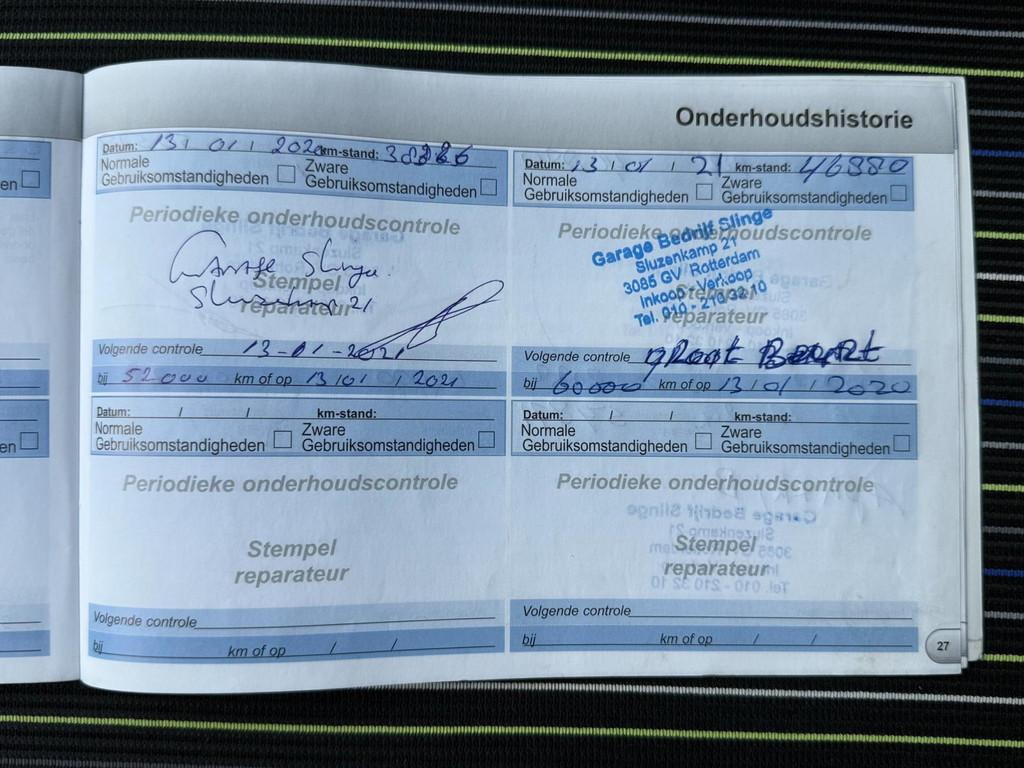 Onderhoudshistorie
Datum: 13 / 01 / 2020 km-stand:
Normale Gebruiksomstandigheden
Zware Gebruiksomstandigheden
Periodieke onderhoudscontrole
Garage Slinge.
Sluzenkamp 21
Stempel
reparateur
Volgende controle 13-01-2021
bij 52000 km of op 13 / 01 / 2021
Datum: 13 / 01 / 21 km-stand: 46880
Normale Gebruiksomstandigheden
Zware Gebruiksomstandigheden
Periodieke onderhoudscontrole
Garage Bedrijf Slinge
Sluzenkamp 21
3085 GV Rotterdam
Inkoop - Verkoop
Tel. 010 - 210 32 10
Stempel
reparateur
Volgende controle groot Beurt
bij 60000 km of op 13 / 01 / 2020
Datum: / / km-stand:
Normale Gebruiksomstandigheden
Zware Gebruiksomstandigheden
Periodieke onderhoudscontrole
Stempel
reparateur
Volgende controle
bij km of op / /
Datum: / / km-stand:
Normale Gebruiksomstandigheden
Zware Gebruiksomstandigheden
Periodieke onderhoudscontrole
Stempel
reparateur
Volgende controle
bij km of op / /
27